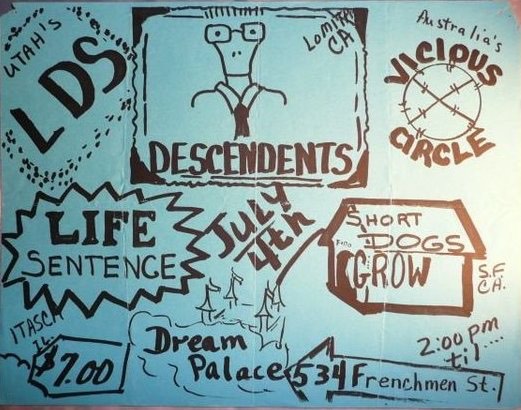 UTAH'S
LDS
LOMITA
CA
DESCENDENTS
Australia's
VICIOUS
CIRCLE
LIFE
SENTENCE
ITASCA
IL.
JULY
4th
SHORT
DOGS
GROW
S.F.
CA.
$7.00
Dream
Palace
534 Frenchmen St.
2:00 pm
til....